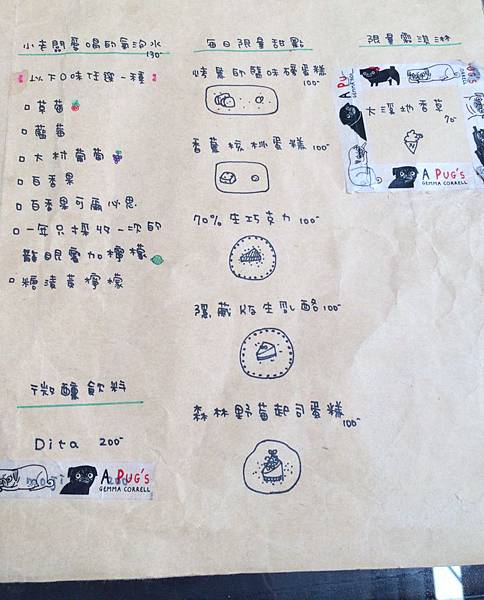 小老闆愛喝的氣泡水
130
以下口味任選一種
草莓
藍莓
大村葡萄
百香果
百香果可爾必思
一年只採收一次的
龍眼蜜加檸檬
糖漬黃檸檬
微釀飲料
Dita 200-
A PUG'S
GEMMA CORRELL
每日限量甜點
烤鳳梨鹽味磅蛋糕
100-
香蕉核桃蛋糕 100-
70% 生巧克力 100-
隱藏版生乳酪 100-
森林野莓起司蛋糕
100-
限量霜淇淋
A PUG'S
大溪地香草
70-
A PUG'S
GEMMA CORRELL